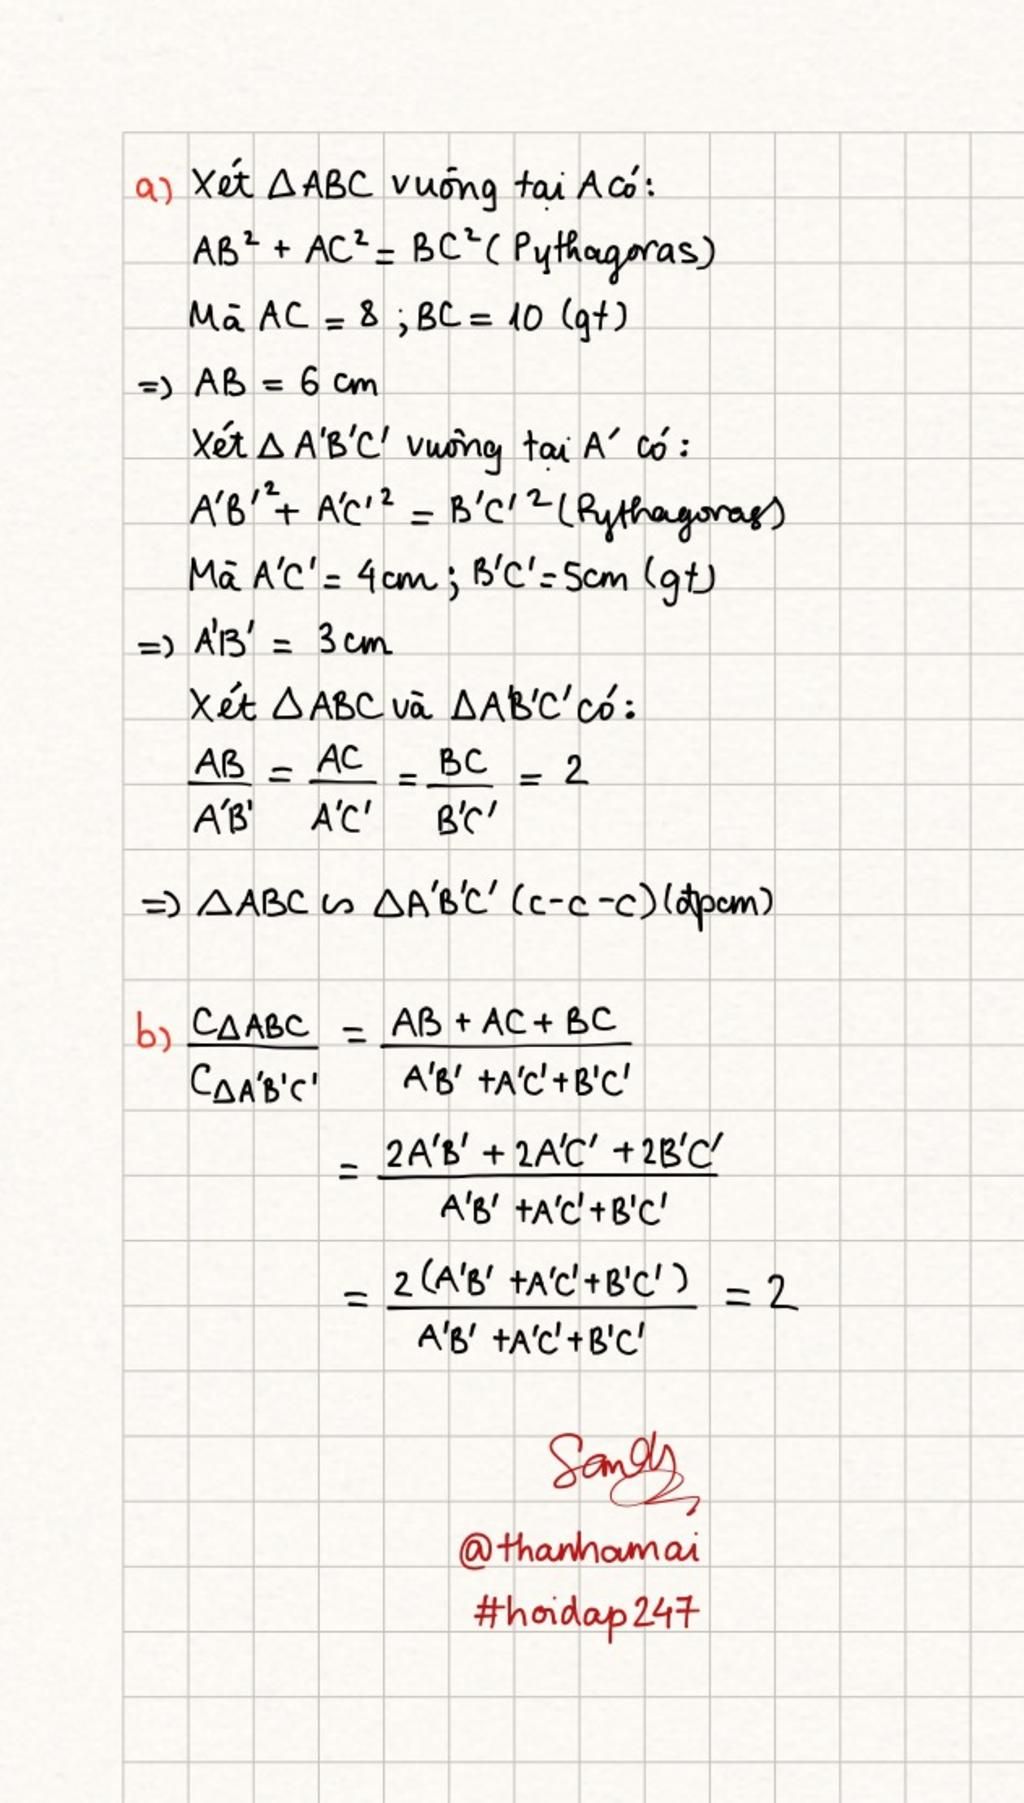 a) Xét ΔABC vuông tại A có:
AB² + AC² = BC² (Pythagoras)
Mà AC = 8 ; BC = 10 (gt)
=) AB = 6 cm
Xét Δ A'B'C' vuông tại A' có:
A'B'² + A'C'² = B'C'² (Pythagoras)
Mà A'C' = 4cm ; B'C' = 5cm (gt)
=) A'B' = 3 cm
Xét ΔABC và ΔA'B'C' có:
AB/A'B' = AC/A'C' = BC/B'C' = 2
=) ΔABC ∽ ΔA'B'C' (c-c-c) (đpcm)
b) CΔABC/CΔA'B'C' = (AB + AC + BC)/(A'B' + A'C' + B'C')
= (2A'B' + 2A'C' + 2B'C')/(A'B' + A'C' + B'C')
= 2(A'B' + A'C' + B'C')/(A'B' + A'C' + B'C') = 2
Sandy
@thanhamai
#hoidap247